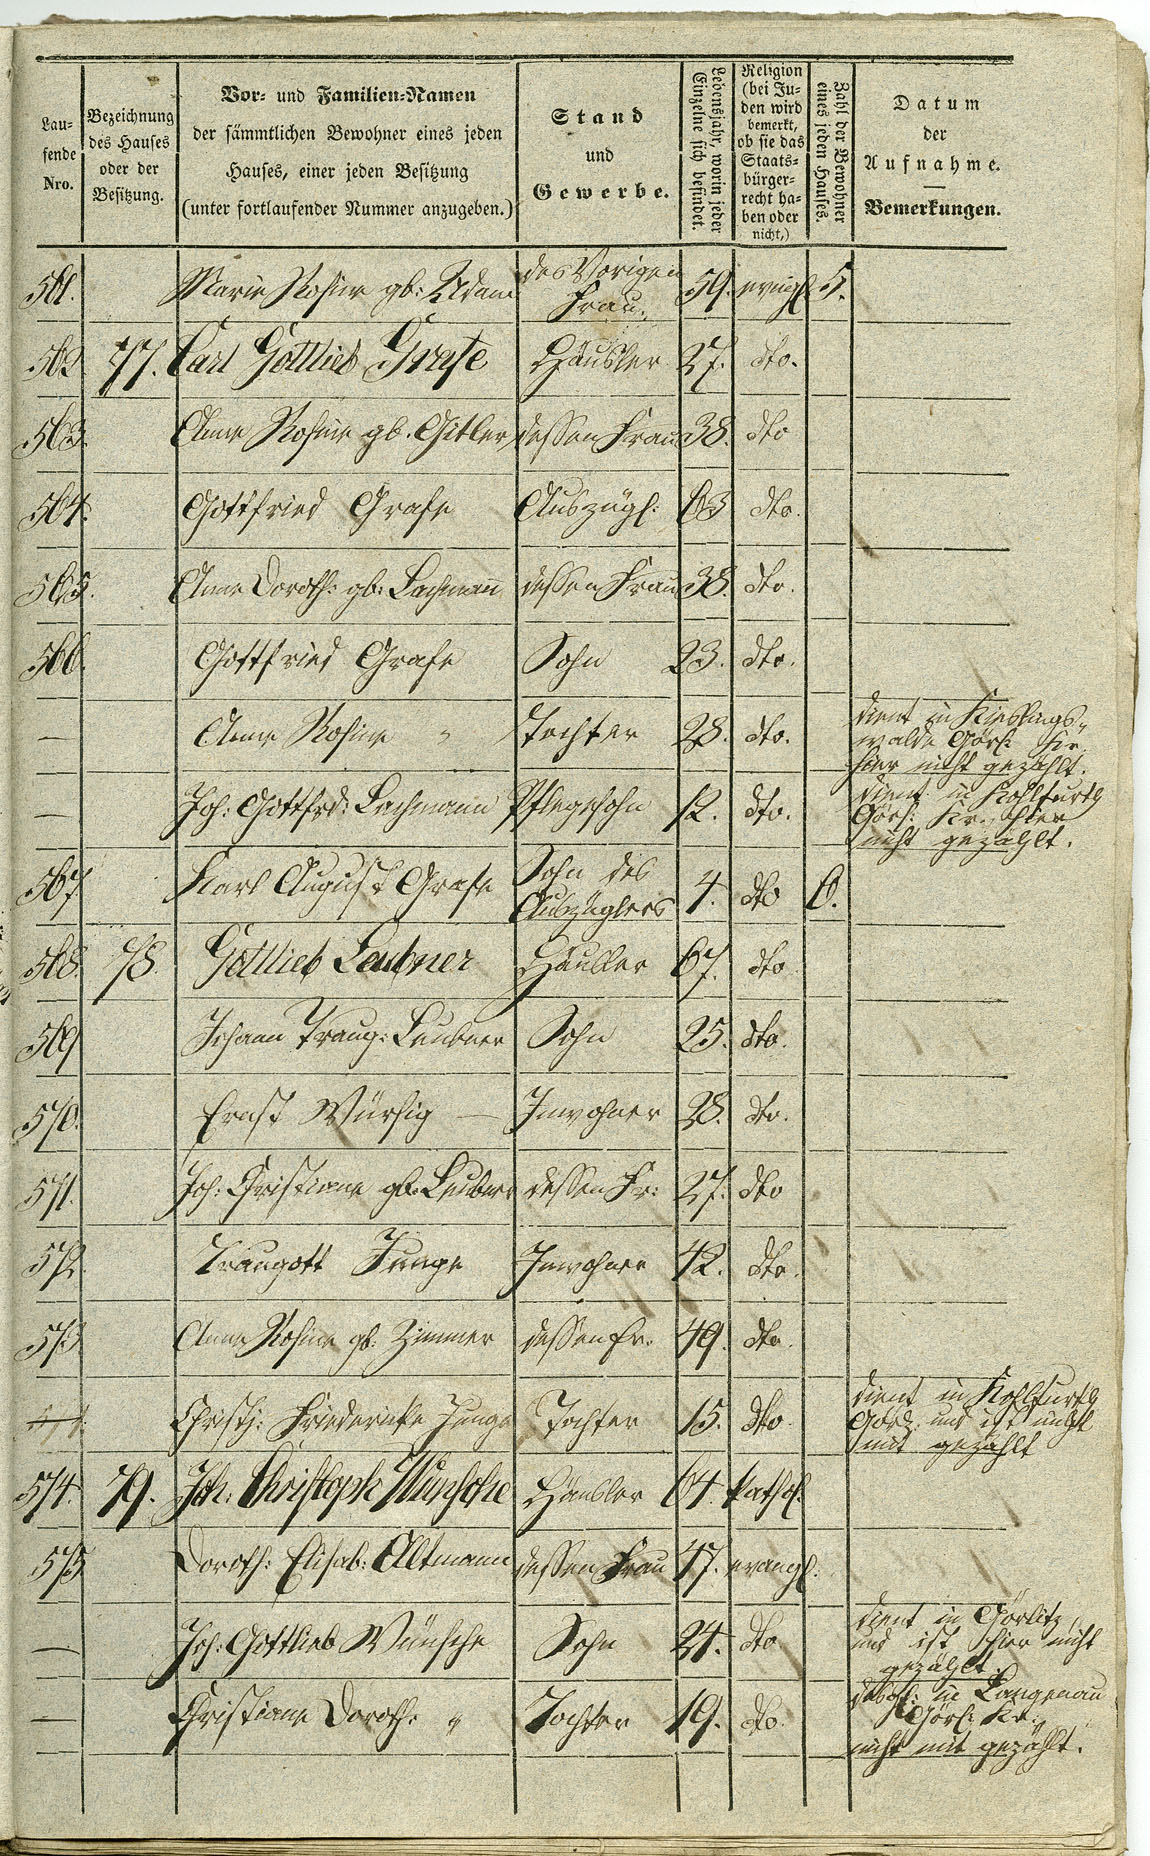 Laufende Nro.
Bezeichnung des Hauses oder der Besitzung.
Vor- und Familien-Namen
der sämmtlichen Bewohner eines jeden
Hauses, einer jeden Besitzung
(unter fortlaufender Nummer anzugeben.)
Stand
und
Gewerbe.
Lebensjahr, worin jeder Einzelne sich befindet.
Religion (bei Juden wird bemerkt, ob sie das Staatsbürgerrecht haben oder nicht,)
Zahl der Bewohner eines jeden Hauses.
Datum
der
Aufnahme.
Bemerkungen.
561. Marie Rosine gb: Adam des Vorigen Frau. 59. evangl. 5.
562. 77. Carl Gottlieb Grafe Häusler 27. dto.
563. Anne Rosine gb. Gitler dessen Frau 38. dto
564. Gottfried Grafe Auszügl: 63 dto.
565. Anne Doroth: gb: Lachmann dessen Frau 38. dto.
566. Gottfried Grafe Sohn 23. dto.
— Anne Rosine " Tochter 28. dto. dient in Kieslings-
walde Görl: Kr.
hier nicht gezählt.
— Joh: Gottfrd: Lachmann Pflegesohn 12. dto. dient in Kohlfurth
Görl: Kr. hier
nicht gezählt.
567 Karl August Grafe Sohn des Auszüglers 4. dto 6.
568. 78. Gottlieb Leubner Häusler 67. dto
569 Johann Traug: Leubner Sohn 25. dto.
570. Ernst Würsig — Inwohner 28. dto.
571. Joh: Christiane gb. Leubner dessen Fr: 27. dto
572. Traugott Junge Inwohner 42. dto.
573. Anne Rosine gb. Zimmer dessen Fr. 49. dto.
Christ: Friedericke Junge Tochter 15. dto. dient in Kohlfurth
und ist nicht
mit gezählt
574. 79. Joh: Christoph Wünsche Häusler 64. kathol.
575 Doroth: Elisab: Altmann dessen Frau 47. evangl.
— Joh: Gottlieb Wünsche Sohn 24. dto dient in Görlitz
und ist hier nicht
gezählt.
— Christiane Doroth: " Tochter 19. dto. in Langenau
Görl: Kr.
nicht mit gezählt.